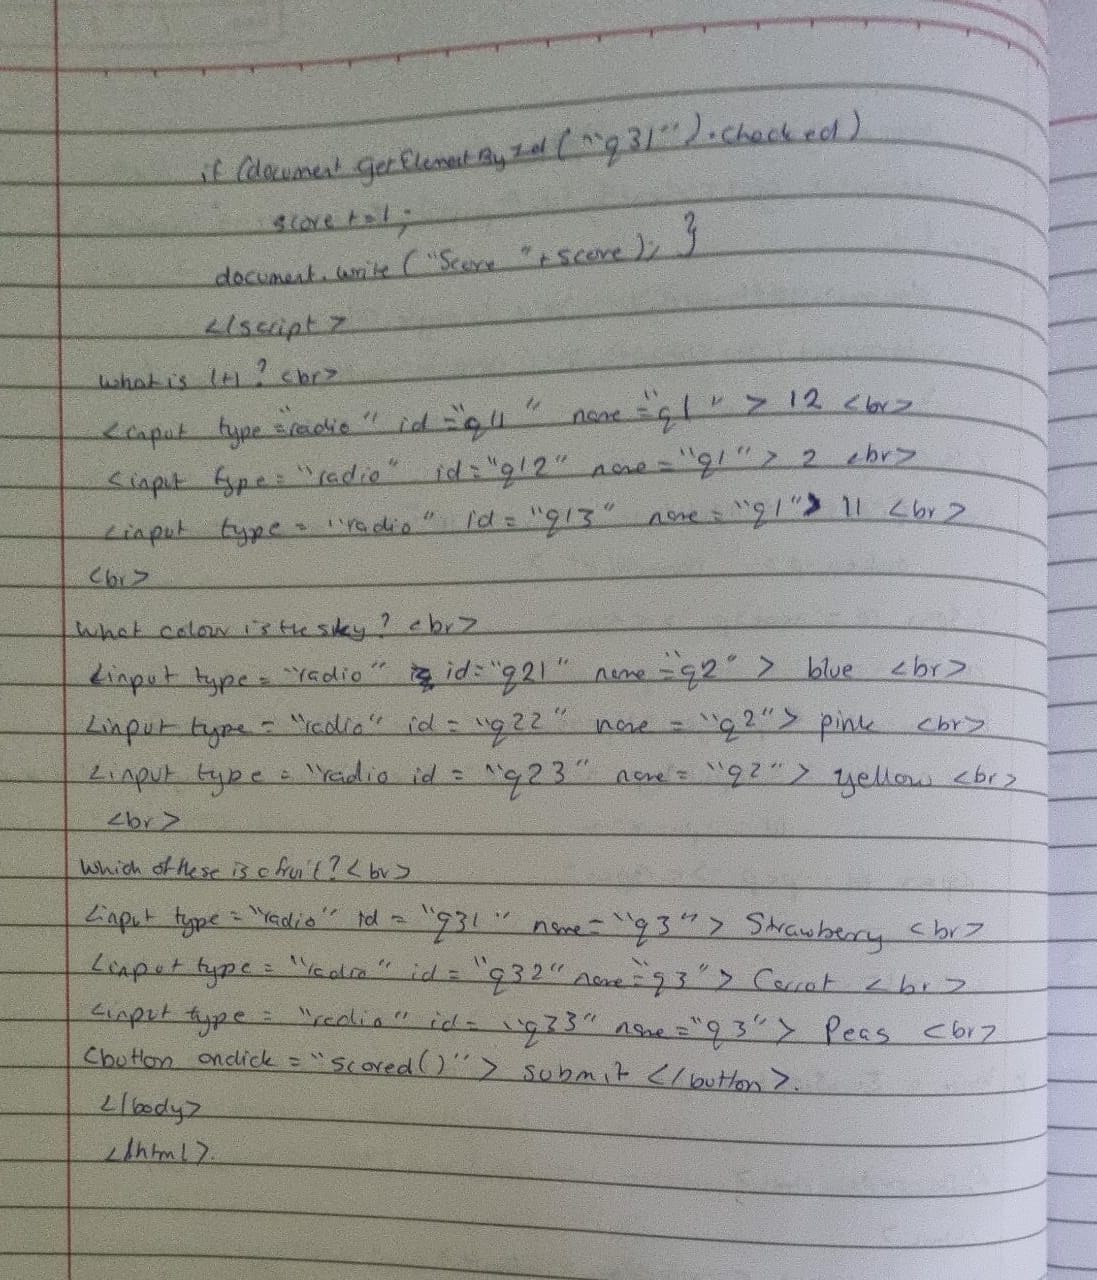 if (document getElementById ("q31").checked)
score +=1;
document.write ("Score "+score); }
</script>
What is 1+1 ? <br>
<input type ="radio" id ="q11" name ="q1" > 12 <br>
<input type = "radio" id = "q12" name = "q1" > 2 <br>
<input type = "radio" id = "q13" name = "q1"> 11 <br>
<br>
What colour is the sky ? <br>
<input type = "radio" id="q21" name ="q2" > blue <br>
<input type = "radio" id = "q22" name = "q2"> pink <br>
<input type = "radio id = "q23" name = "q2"> yellow <br>
<br>
Which of these is a fruit ? <br>
<input type = "radio" id = "q31" name = "q3"> Strawberry <br>
<input type = "radio" id = "q32" name = "q3"> Carrot <br>
<input type = "radio" id = "q33" name = "q3"> Peas <br>
<button onclick = "scored()"> submit </button>.
</body>
</html>.